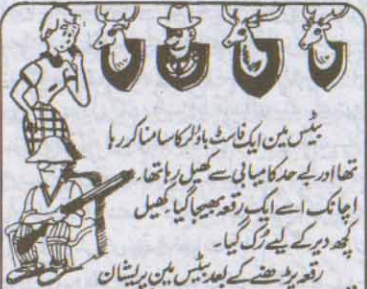 بیٹس مین ایک فاسٹ باؤلر کا سامنا کر رہا
تھا اور بے حد کامیابی سے کھیل رہا تھا۔
اچانک اسے ایک رقعہ بھیجا گیا کھیل
کچھ دیر کے لیے رک گیا۔
رقعہ پڑھنے کے بعد بیٹس مین پریشان